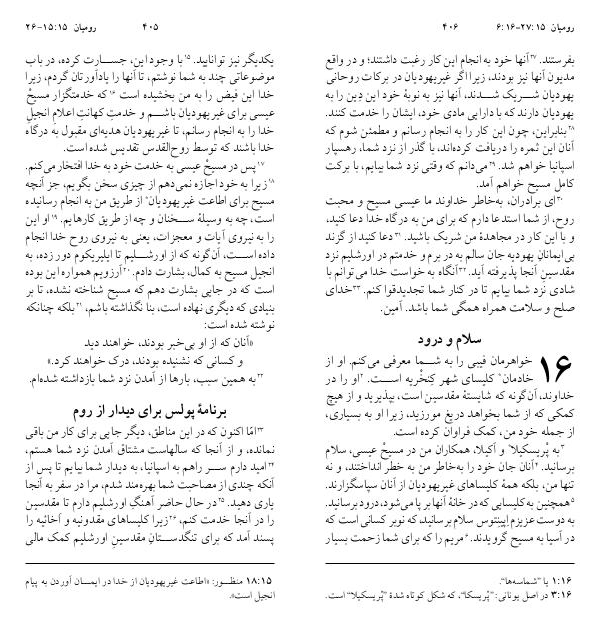 رومیان ۱۵:‏۱۵-۲۶
۴۰۵
یکدیگر نیز توانایید. ۱۵با وجود این، جسارت کرده، در باب
موضوعاتی چند به شما نوشتم، تا آنها را یادآورتان گردم، زیرا
خدا این فیض را به من بخشیده است ۱۶که خدمتگزار مسیحْ
عیسی برای غیریهودیان باشم و خدمتِ کهانتِ اعلامِ انجیلِ
خدا را به انجام رسانم، تا غیریهودیان هدیه‌ای مقبول به درگاه
خدا باشند که توسط روح‌القدس تقدیس شده است.
۱۷پس در مسیحْ عیسی به خدمت خود به خدا افتخار می‌کنم.
۱۸زیرا به خود اجازه نمی‌دهم از چیزی سخن بگویم، جز آنچه
مسیح برای اطاعت غیریهودیان* از طریق من به انجام رسانیده
است، چه به وسیلۀ سخنان و چه از طریق کارهایم. ۱۹او این
را به نیروی آیات و معجزات، یعنی به نیروی روح خدا انجام
داده است، آن‌گونه که از اورشلیم تا ایلیریکوم دور زده، به
انجیل مسیح به کمال، بشارت دادم. ۲۰آرزویم همواره این بوده
است که در جایی بشارت دهم که مسیح شناخته نشده، تا بر
بنیادی که دیگری نهاده است، بنا نگذاشته باشم، ۲۱بلکه چنانکه
نوشته شده است:
«آنان که از او بی‌خبر بودند، خواهند دید
و کسانی که نشنیده بودند، درک خواهند کرد.»
۲۲به همین سبب، بارها از آمدن نزد شما بازداشته شده‌ام.
برنامۀ پولس برای دیدار از روم
۲۳امّا اکنون که در این مناطق، دیگر جایی برای کار من باقی
نمانده، و از آنجا که سالهاست مشتاق آمدن نزد شما هستم،
۲۴امید دارم سر راهم به اسپانیا، به دیدار شما بیایم تا پس از
آنکه چندی از مصاحبت شما بهره‌مند شدم، مرا در سفر به آنجا
یاری دهید. ۲۵در حال حاضر آهنگِ اورشلیم دارم تا مقدسین
را در آنجا خدمت کنم، ۲۶زیرا کلیساهای مقدونیه و اَخائیه را
پسند آمد که برای تنگدستانِ مقدسینِ اورشلیم کمک مالی
۱۸:۱۵ منظور: «اطاعت غیریهودیان از خدا در ایمان آوردن به پیام
انجیل است».
رومیان ۲۷:۱۵-۶:۱۶
۴۰۶
بفرستند. ۲۷آنها خود به انجام این کار رغبت داشتند؛ و در واقع
مدیون آنها نیز بودند، زیرا اگر غیریهودیان در برکات روحانی
یهودیان شریک شدند، آنها نیز به نوبۀ خود این دِین را به
یهودیان دارند که با دارایی مادی خود، ایشان را خدمت کنند.
۲۸بنابراین، چون این کار را به انجام رسانم و مطمئن شوم که
آنان این ثمره را دریافت کرده‌اند، با گذر از نزد شما، رهسپار
اسپانیا خواهم شد. ۲۹می‌دانم که وقتی نزد شما بیایم، با برکت
کامل مسیح خواهم آمد.
۳۰ای برادران، به‌خاطر خداوند ما عیسی مسیح و محبت
روح، از شما استدعا دارم که برای من به درگاه خدا دعا کنید،
و با این کار در مجاهدۀ من شریک باشید. ۳۱دعا کنید از گزند
بی‌ایمانانِ یهودیه جان سالم به در برم و خدمتم در اورشلیم نزد
مقدسینِ آنجا پذیرفته آید. ۳۲آنگاه به خواست خدا می‌توانم با
شادی نزد شما بیایم تا در کنار شما تجدیدقوا کنم. ۳۳خدای
صلح و سلامت همراه همگی شما باشد. آمین.
سلام و درود
۱۶ خواهرمان فیبی را به شما معرفی می‌کنم. او از
خادمان* کلیسای شهر کِنخْریه است. ۲او را در
خداوند، آن‌گونه که شایستۀ مقدسین است، بپذیرید و از هیچ
کمکی که از شما بخواهد دریغ مورزید، زیرا او به بسیاری،
از جمله خود من، کمک فراوان کرده است.
۳به پْریسکیلا* و آکیلا، همکاران من در مسیحْ عیسی، سلام
برسانید. ۴آنان جان خود را به‌خاطر من به خطر انداختند، و نه
تنها من، بلکه همۀ کلیساهای غیریهودیان از آنان سپاسگزارند.
۵همچنین به کلیسایی که در خانۀ آنها بر پا می‌شود، درود برسانید.
به دوست عزیزم اِپینِتوس سلام برسانید، که نوبر کسانی است که
در آسیا به مسیح گرویدند. ۶مریم را که برای شما زحمت بسیار
۱:۱۶ یا ”شماسه‌ها“.
۳:۱۶ در اصل یونانی: ”پْریسکا“، که شکل کوتاه شدۀ ”پْریسکیلا“ است.